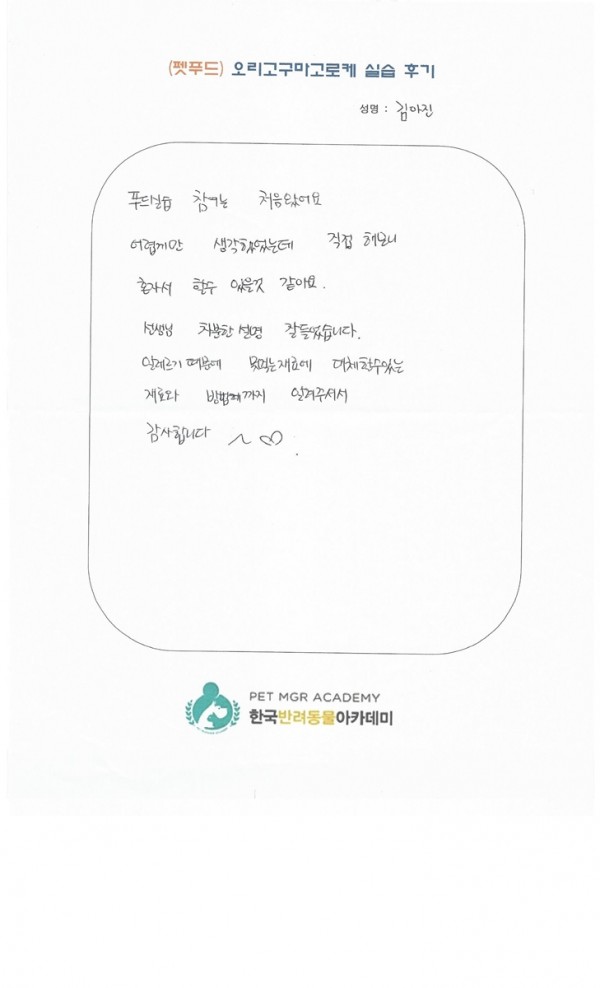 (펫푸드) 오리고구마고로케 실습 후기
성명 : 김아진
푸드실습 참여는 처음왔어요
어렵게만 생각했었는데 직접 해보니
혼자서 할수 있을것 같아요.
선생님 차분한 설명 잘들었습니다.
알레르기 때문에 못먹는재료에 대체할수있는
재료와 방법까지 알려주셔서
감사합니다 ~♡.
PET MGR ACADEMY
한국반려동물아카데미